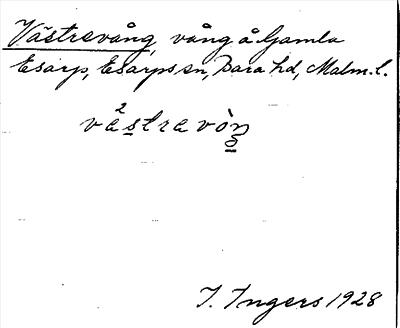 Västrevång, vång å Gamla
Esarp, Esarps sn, Bara hd, Malm. l.
västravòn
I. Ingers 1928